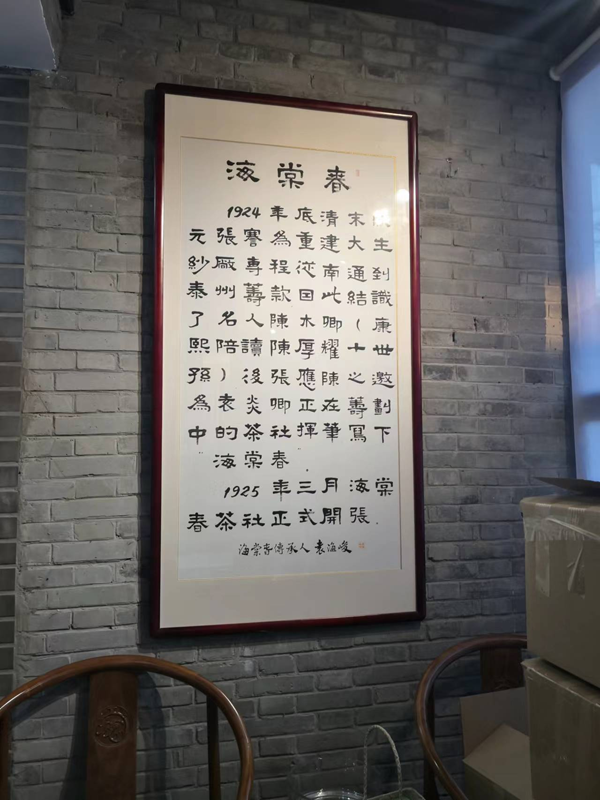 海棠春
1924年底清末狀
元張謇為重建大生
紗厰專程從南通到
泰州籌款回此結識
了名人陳木卿(康
熙陪讀陳厚耀十世
孫)後張應陳之邀
為袁炎卿正在籌劃
中的茶社揮筆寫下
"海棠春".
1925年三月海棠
春茶社正式開張.
海棠春傳承人 袁海峻